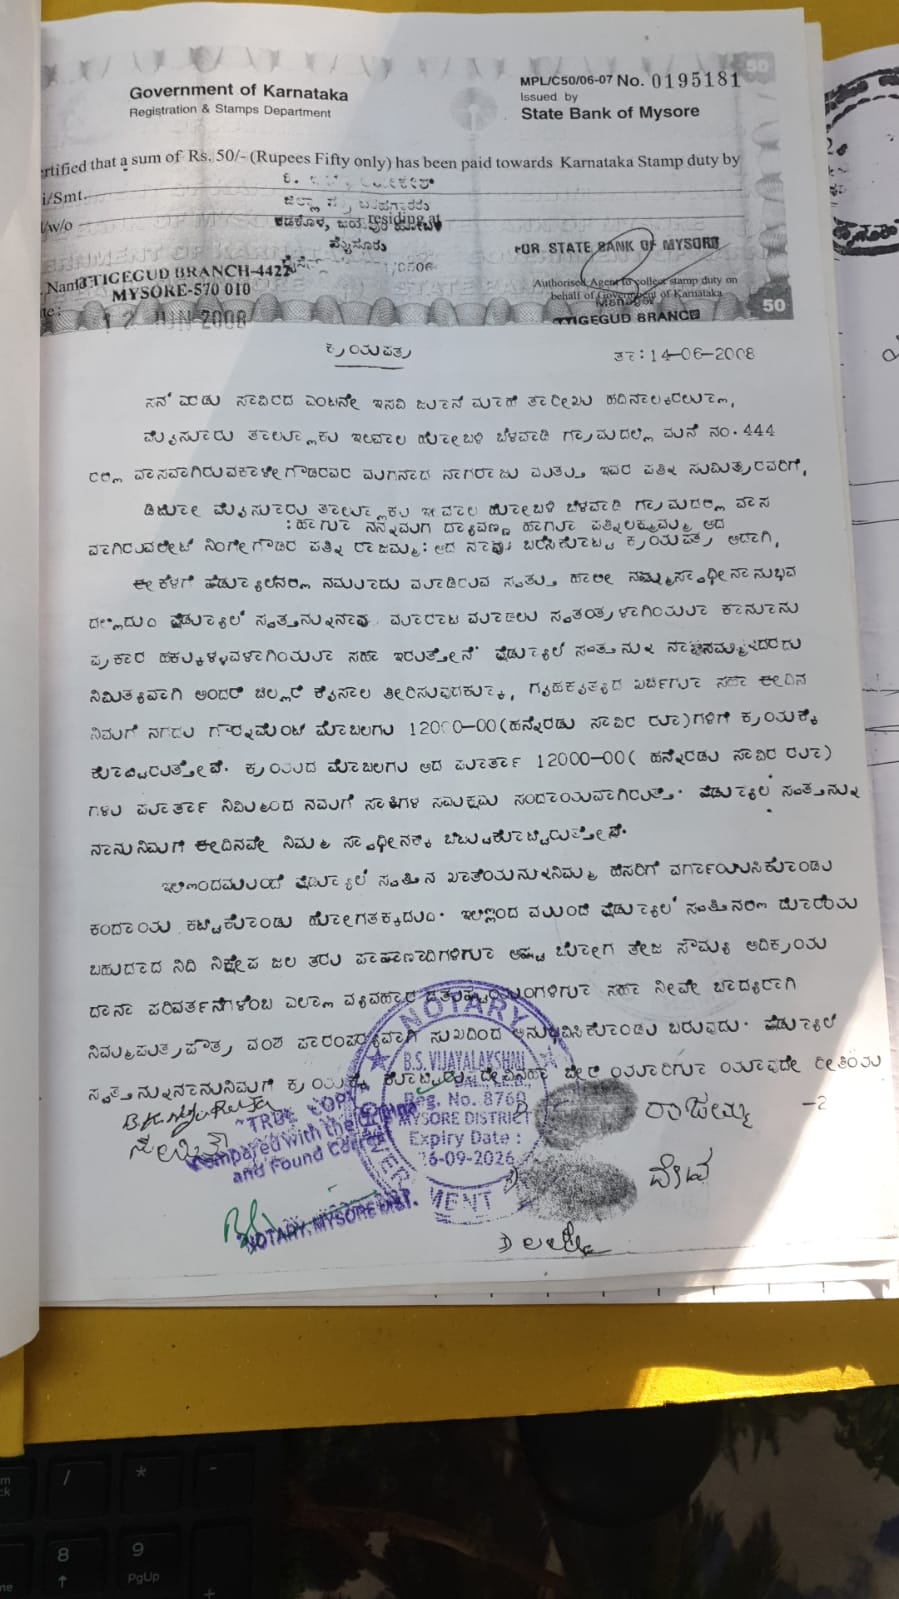 MPL/C50/06-07 No. 0195181
Government of Karnataka
Registration & Stamps Department
Issued by
State Bank of Mysore
50
rtified that a sum of Rs. 50/- (Rupees Fifty only) has been paid towards Karnataka Stamp duty by
i/Smt.
/w/o
residing at
ಮೈಸೂರು
FOR STATE BANK OF MYSORE
TTIGEGUD BRANCH-4422
MYSORE-570 010
Authorised Agent to collect stamp duty on
behalf of Government of Karnataka
Manager
TTIGEGUD BRANCH
50
12 JUN 2008
ಕ್ರಯಪತ್ರ
ತಾ:14-06-2008
ಸನ್ ಎರಡು ಸಾವಿರದ ಎಂಟನೇ ಇಸವಿ ಜೂನ್ ಮಾಹೆ ತಾರೀಖು ಹದಿನಾಲ್ಕರಲ್ಲೂ,
ಮೈಸೂರು ತಾಲ್ಲೂಕು ಇಲವಾಲ ಹೋಬಳಿ ಬೆಳವಾಡಿ ಗ್ರಾಮದಲ್ಲಿ ಮನೆ ನಂ.444
ರಲ್ಲಿ ವಾಸವಾಗಿರುವ ಕಾಳೇಗೌಡರವರ ಮಗನಾದ ನಾಗರಾಜು ಮತ್ತು ಇವರ ಪತ್ನಿ ಸುಮಿತ್ರರವರಿಗೆ,
ಡಿಟೋ ಮೈಸೂರು ತಾಲ್ಲೂಕು ಇಲವಾಲ ಹೋಬಳಿ ಬೆಳವಾಡಿ ಗ್ರಾಮದಲ್ಲಿ ವಾಸ
:ಹಾಗೂ ನನ್ನ ಮಗ ದ್ಯಾವಣ್ಣ ಹಾಗೂ ಪತ್ನಿ ಲಕ್ಷ್ಮಮ್ಮ ಆದ
ವಾಗಿರುವ ಲೇಟ್ ನಿಂಗೇಗೌಡರ ಪತ್ನಿ ರಾಜಮ್ಮ: ಆದ ನಾವು ಬರೆಸಿಕೊಟ್ಟ ಕ್ರಯಪತ್ರ ಏನೆಂದರೆ
ಈ ಕೆಳಗೆ ಷೆಡ್ಯೂಲಿನಲ್ಲಿ ನಮೂದು ಮಾಡಿರುವ ಸ್ವತ್ತು ಹಾಲೀ ನಮ್ಮ ಸ್ವಾಧೀನಾನುಭವ
ದಲ್ಲಿದ್ದು ಷೆಡ್ಯೂಲ್ ಸ್ವತ್ತನ್ನು ನಾವು ಮಾರಾಟ ಮಾಡಲು ಸ್ವತಂತ್ರಳಾಗಿಯೂ ಕಾನೂನು
ಪ್ರಕಾರ ಹಕ್ಕುಳ್ಳವಳಾಗಿಯೂ ಸಹಾ ಇರುತ್ತೇನೆ ಷೆಡ್ಯೂಲ್ ಸ್ವತ್ತನ್ನು
ನಿಮಿತ್ಯವಾಗಿ ಅಂದರೆ ಚಿಲ್ಲರೆ ಕೈಸಾಲ ತೀರಿಸುವುದಕ್ಕೂ, ಗೃಹಕೃತ್ಯದ ಖರ್ಚಿಗೂ ಸಹಾ ಈ ದಿನ
ನಿಮಗೆ ನಗದು ಗೌರ್ನಮೆಂಟ್ ಮೊಬಲಗು 12000-00(ಹನ್ನೆರಡು ಸಾವಿರ ರೂ)ಗಳಿಗೆ ಕ್ರಯಕ್ಕೆ
ಕೊಟ್ಟಿರುತ್ತೇವೆ. ಕ್ರಯದ ಮೊಬಲಗು ಆದ ಪೂರ್ತಾ 12000-00( ಹನ್ನೆರಡು ಸಾವಿರ ರೂ)
ಗಳು ಪೂರ್ತಾ ನಿಮ್ಮಿಂದ ನಮಗೆ ಸಾಕ್ಷಿಗಳ ಸಮಕ್ಷಮ ಸಂದಾಯವಾಗಿರುತ್ತೆ. ಷೆಡ್ಯೂಲ್ ಸ್ವತ್ತನ್ನು
ನಾನು ನಿಮಗೆ ಈ ದಿನವೇ ನಿಮ್ಮ ಸ್ವಾಧೀನಕ್ಕೆ ಬಿಟ್ಟುಕೊಟ್ಟಿರುತ್ತೇವೆ.
ಇಲ್ಲಿಂದ ಮುಂದೆ ಷೆಡ್ಯೂಲ್ ಸ್ವತ್ತಿನ ಖಾತೆಯನ್ನು ನಿಮ್ಮ ಹೆಸರಿಗೆ ವರ್ಗಾಯಿಸಿಕೊಂಡು
ಕಂದಾಯ ಕಟ್ಟಿಕೊಂಡು ಹೋಗತಕ್ಕದ್ದು. ಇಲ್ಲಿಂದ ಮುಂದೆ ಷೆಡ್ಯೂಲ್ ಸ್ವತ್ತಿನಲ್ಲಿ ದೊರೆಯ
ಬಹುದಾದ ನಿಧಿ ನಿಕ್ಷೇಪ ಜಲ ತರು ಪಾಷಾಣಾದಿಗಳಿಗೂ ಅಷ್ಟ ಬೋಗ ತೇಜ ಸೌಮ್ಯ ಆದಿಕ್ರಯ
ದಾನಾ ಪರಿವರ್ತನೆಗಳೆಂಬ ಎಲ್ಲಾ ವ್ಯವಹಾರ ಚತುಷ್ಟಯಂಗಳಿಗೂ ಸಹಾ ನೀವೇ ಬಾದ್ಯರಾಗಿ
ನಿಮ್ಮ ಪುತ್ರ ಪೌತ್ರ ವಂಶ ಪಾರಂಪರ್ಯವಾಗಿ ಸುಖದಿಂದ ಅನುಭವಿಸಿಕೊಂಡು ಬರುವುದು. ಷೆಡ್ಯೂಲ್
ಸ್ವತ್ತನ್ನು ನಾನು ನಿಮಗೆ ಕ್ರಯಕ್ಕೆ ಕೊಟ್ಟಿರುವುದೇ ವಿನಹಾ ಬೇರೆ ಯಾರಿಗೂ ಯಾವುದೇ ರೀತಿಯ
-2
NOTARY
B.S. VIJAYALAKSHMI
Reg. No. 8760
MYSORE DISTRICT
Expiry Date :
26-09-2026
"TRUE COPY"
Compared with the Original
and Found Correct
NOTARY, MYSORE DIST.
ರಾಜಮ್ಮ